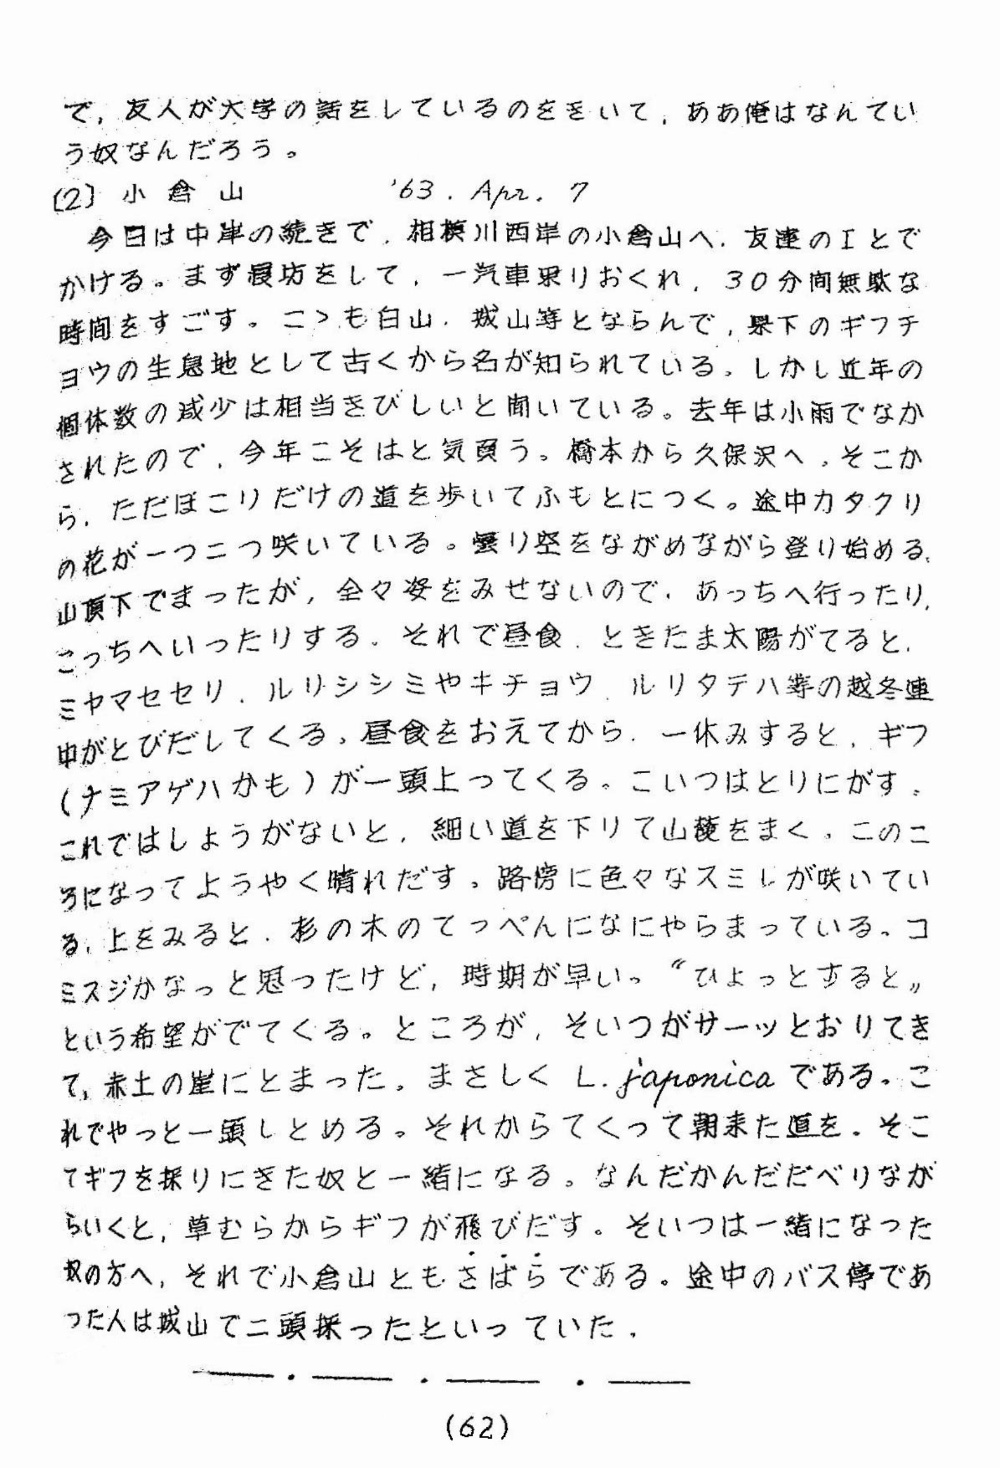 で，友人が大学の話をしているのをきいて，ああ俺はなんてい
う奴なんだろう。
〔2〕 小倉山 '63. Apr. 7
今日は中岸の続きで，相模川西岸の小倉山へ，友達のIとで
かける。まず寝坊をして，一汽車乗りおくれ，30分間無駄な
時間をすごす。こゝも白山，城山等とならんで，県下のギフチ
ョウの生息地として古くから名が知られている。しかし近年の
個体数の減少は相当きびしいと聞いている。去年は小雨でなか
されたので，今年こそはと気負う。橋本から久保沢へ，そこか
ら，ただほこりだけの道を歩いてふもとにつく。途中カタクリ
の花が一つ二つ咲いている。曇り空をながめながら登り始める，
山頂下でまったが，全々姿をみせないので，あっちへ行ったり，
こっちへいったりする。それで昼食．ときたま太陽がてると，
ミヤマセセリ，ルリシジミやキチョウ，ルリタテハ等の越冬連
中がとびだしてくる。昼食をおえてから，一休みすると，ギフ
(ナミアゲハかも)が一頭上ってくる。こいつはとりにがす。
これではしようがないと，細い道を下りて山麓をまく。このこ
ろになってようやく晴れだす。路傍に色々なスミレが咲いてい
る，上をみると，杉の木のてっぺんになにやらまっている。コ
ミスジかなっと思ったけど，時期が早い。〝ひょっとすると〟
という希望がでてくる。ところが，そいつがサーッとおりてき
て，赤土の崖にとまった。まさしく L. japonica である。こ
れでやっと一頭しとめる。それからてくって朝来た道を。そこ
でギフを採りにきた奴と一緒になる。なんだかんだだべりなが
らいくと，草むらからギフが飛びだす。そいつは一緒になった
奴の方へ，それで小倉山ともさばらである。途中のバス停であ
った人は城山で二頭採ったといっていた．
(62)